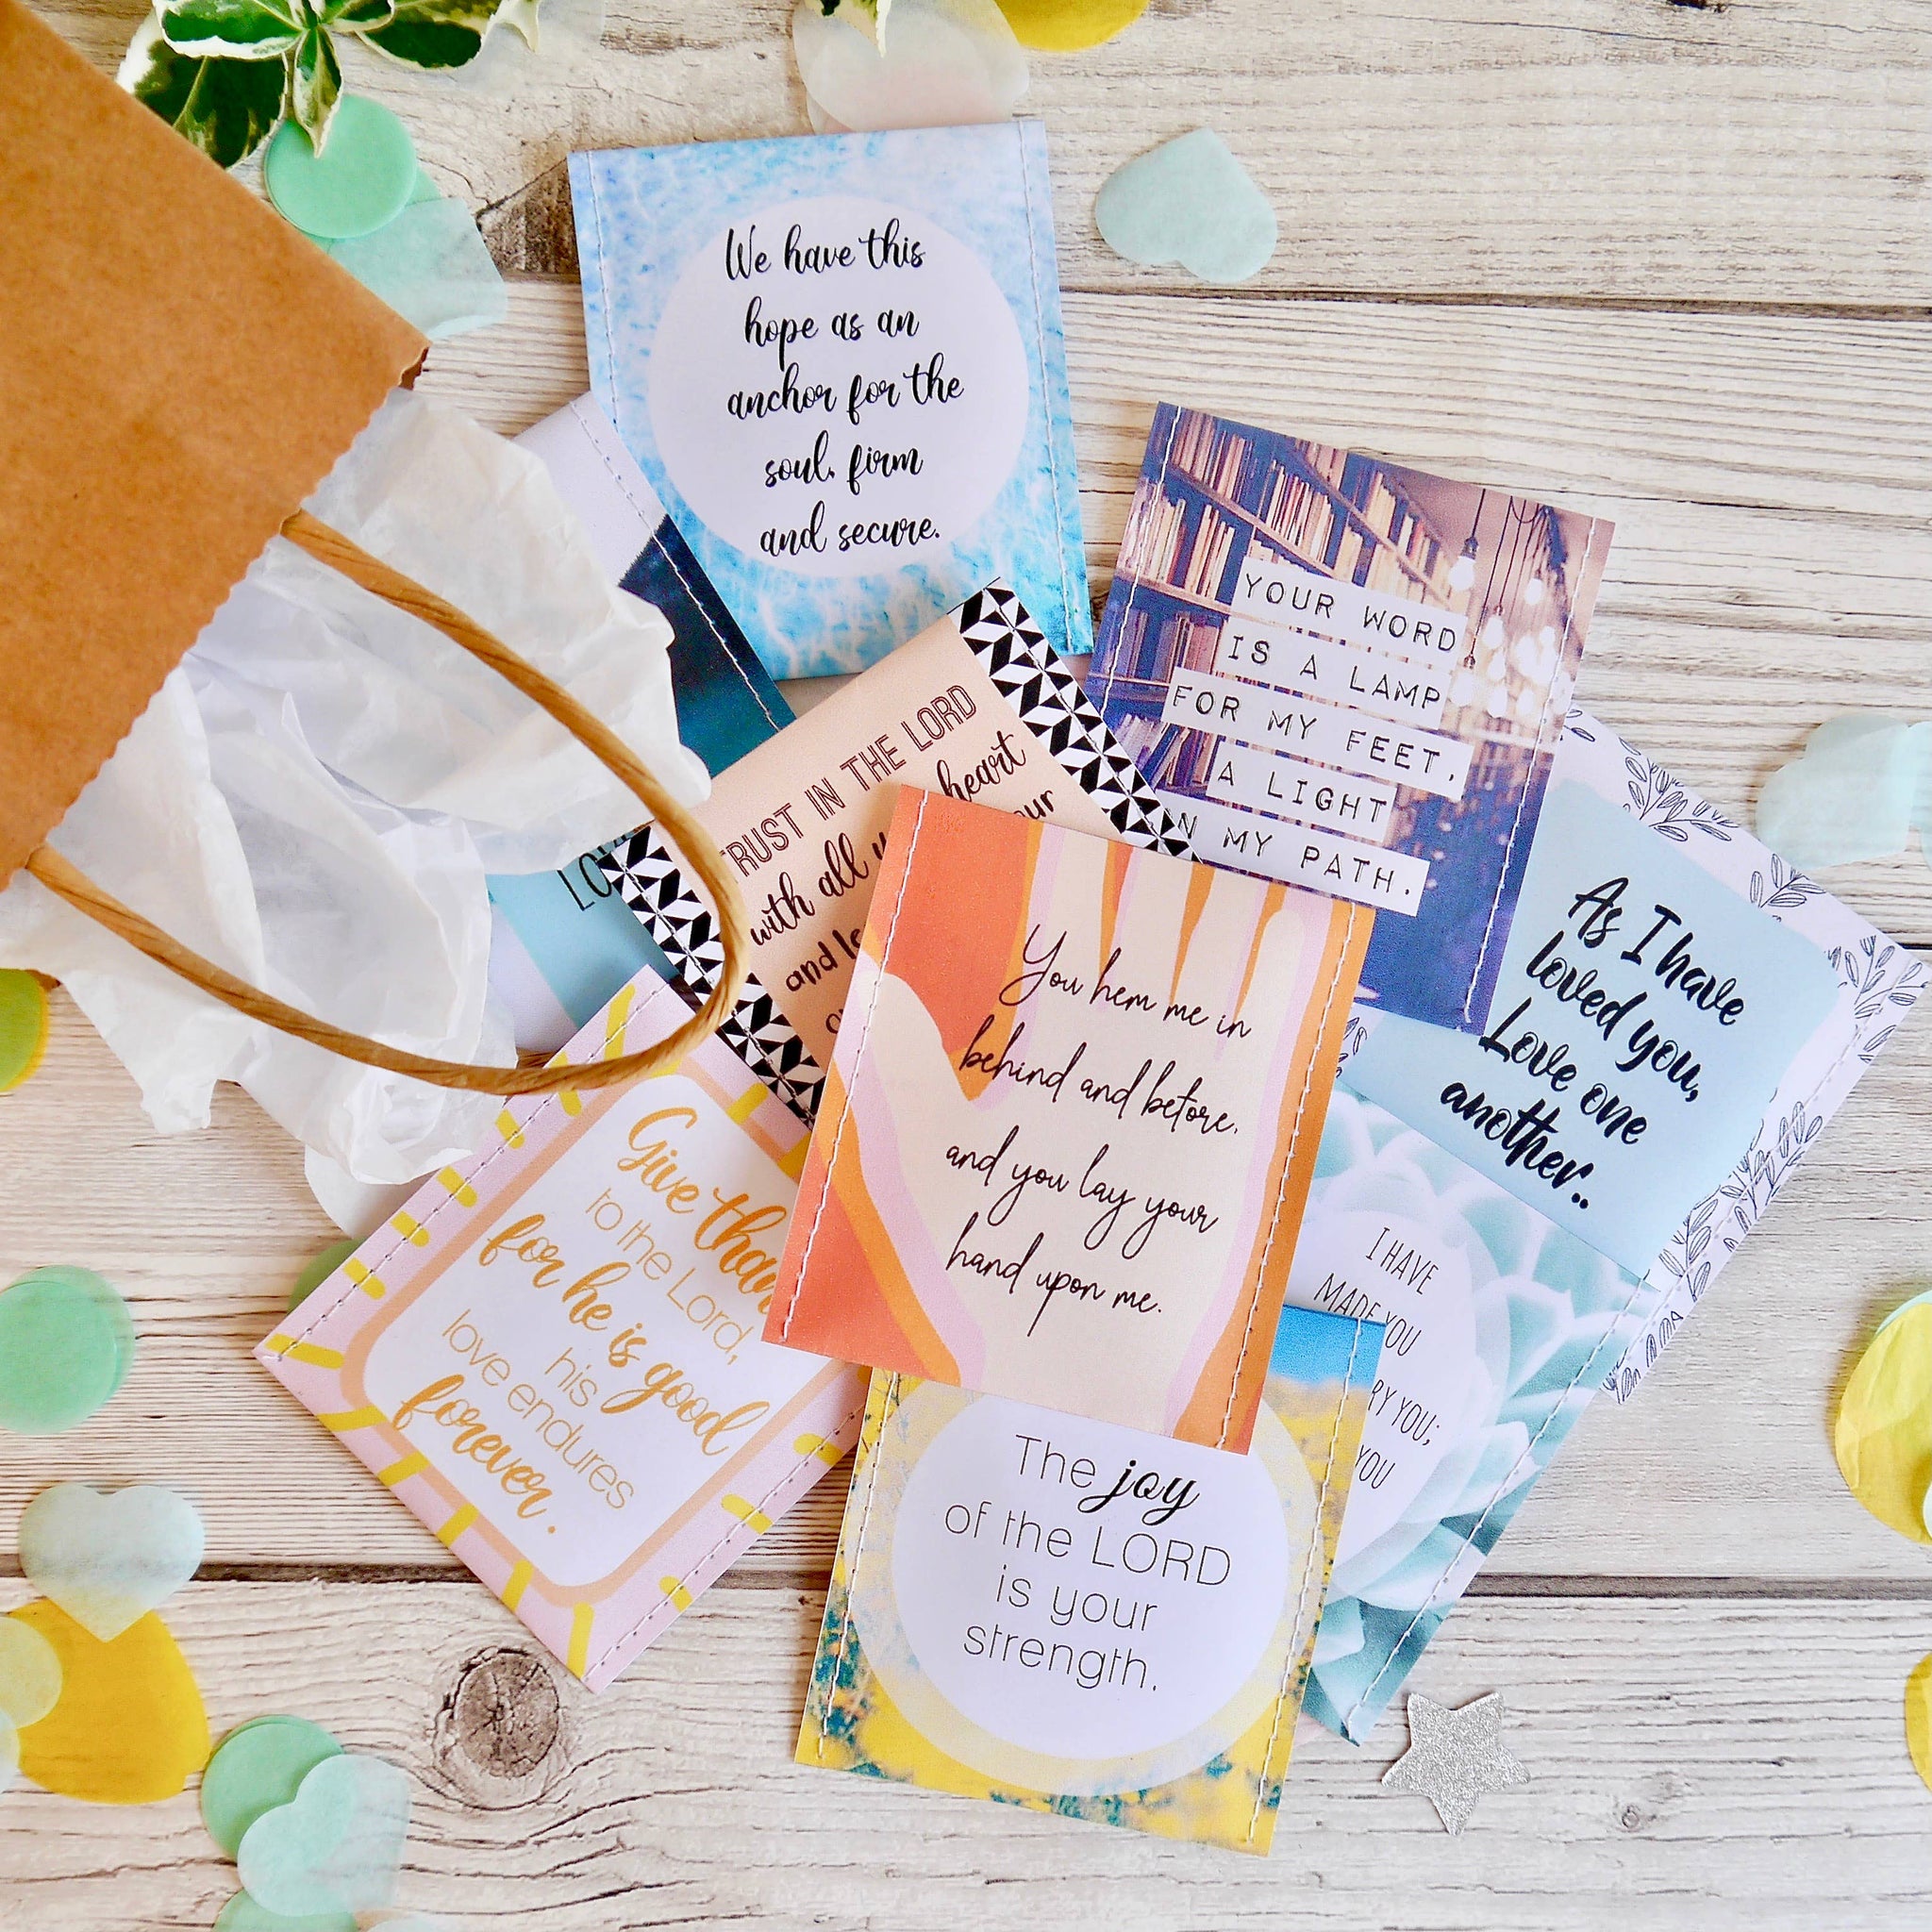 We have this
hope as an
anchor for the
soul, firm
and secure.
YOUR WORD
IS A LAMP
FOR MY FEET,
A LIGHT
MY PATH.
TRUST IN THE LORD
with all heart
and
As I have
loved you,
Love one
another..
You hem me in
behind and before,
and you lay your
hand upon me.
Give
to the Lord,
for he is good
his
love endures
forever.
I HAVE
MADE YOU
YOU;
YOU
The joy
of the LORD
is your
strength.